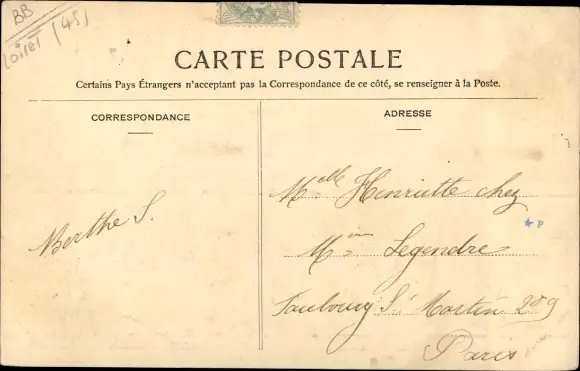 BB
Loiret (45)
CARTE POSTALE
Certains Pays Étrangers n'acceptent pas la Correspondance de ce côté, se renseigner à la Poste.
CORRESPONDANCE
Berthe S.
ADRESSE
Melle Henriette chez
Mme Legendre
Faubourg St Martin 209
Paris